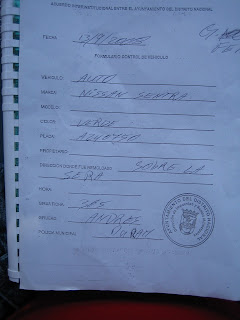 ACUERDO INTERINSTITUCIONAL ENTRE EL AYUNTAMIENTO DEL DISTRITO NACIONAL
FECHA: 13/9/2008
FORMULARIO CONTROL DE VEHICULO
VEHICULO: AUTO
MARCA: NISSAN SENTRA
MODELO:
COLOR: VERDE
PLACA:
PROPIETARIO:
DIRECCION DONDE FUE REMOLCADO: SOBRE LA
SERA
HORA:
GRUA FICHA: 385
BRIGADA: ANDRES
POLICIA MUNICIPAL: DURAN
AYUNTAMIENTO DEL DISTRITO NACIONAL